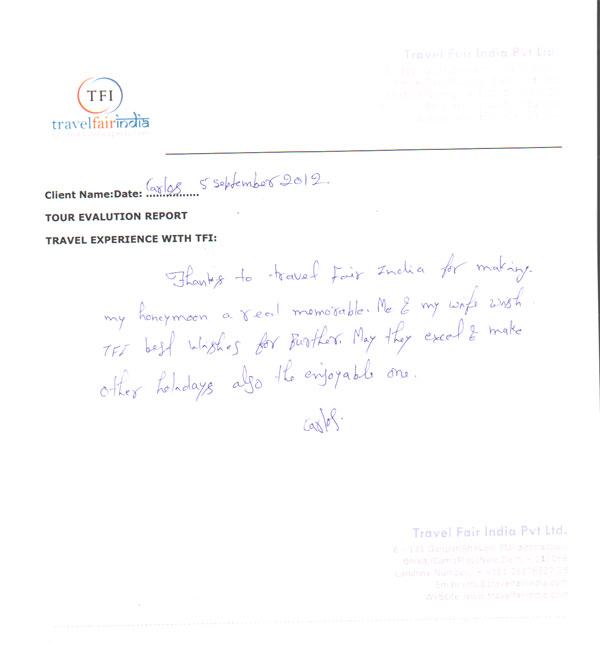 Travel Fair India Pvt Ltd.
TFI
travelfairindia
Client Name:Date: Carlos 5 September 2012.
TOUR EVALUTION REPORT
TRAVEL EXPERIENCE WITH TFI:
Thanks to travel Fair India for making
my honeymoon a real memorable. Me & my wife wish
TFI best wishes for Further. May they excel & make
other holidays also the enjoyable one.
Carlos.
Travel Fair India Pvt Ltd.